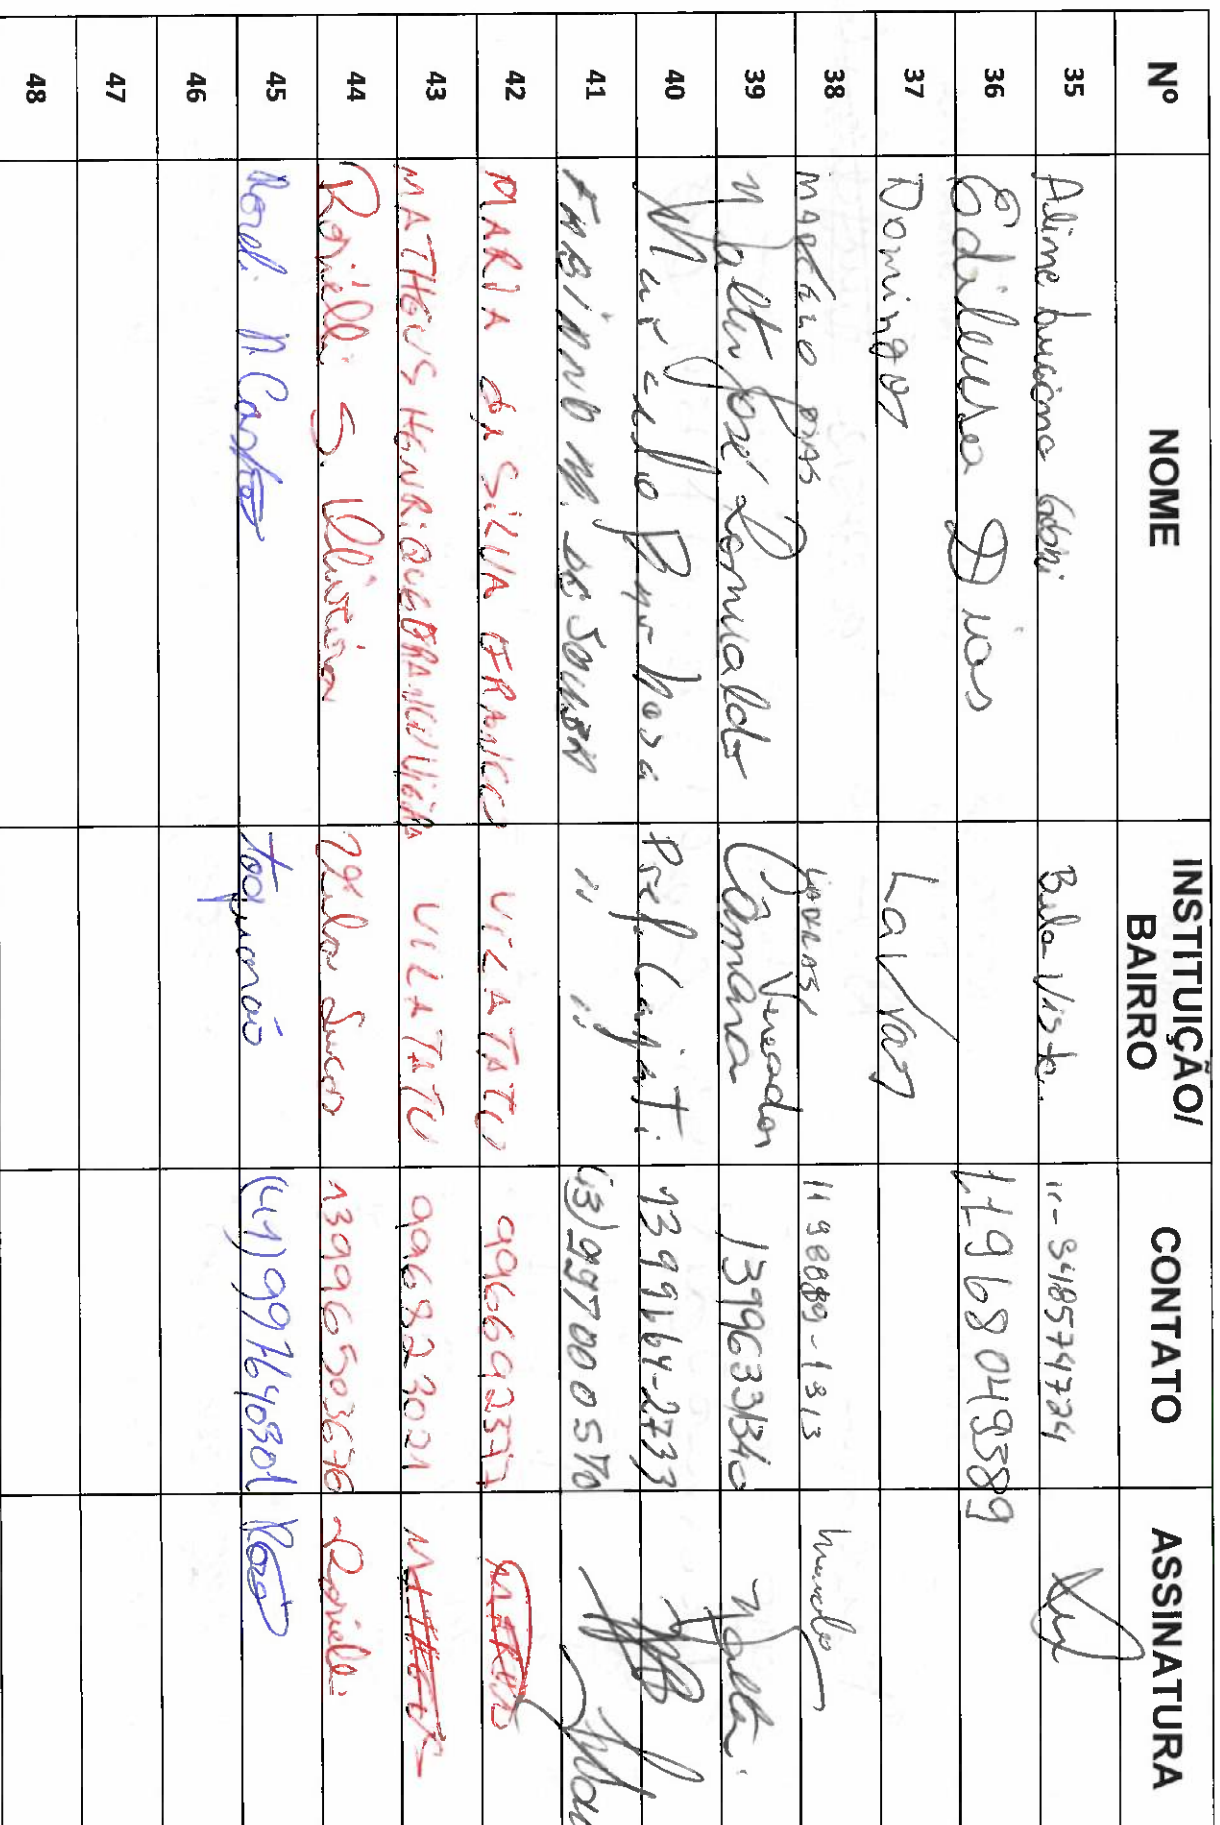 Nº NOME INSTITUIÇÃO/ BAIRRO CONTATO ASSINATURA
35 Aline Luciana Bela Vista 11-948574724
36 Edileusa Dias 11968049389
37 Domingos Lavras
38 MARCELO DIAS LAVRAS 11 98889-1313 Marcelo
39 Walter José Romualdo Vereador Câmara 13996331340 Walter
40 Marcelo Barbosa Pref. Cajati 13 99964-2733
41 FABIANO M. DE SOUZA " " (13) 997000570
42 MARIA da SILVA FRANCO VILA TATU 996692377
43 MATHEUS HENRIQUE FRANCO VIEIRA VILA TATU 996823021
44 Rarielli S. Oliveira Vila 13996503676 Rarielli
45 N. Castro (41) 991640301
46
47
48